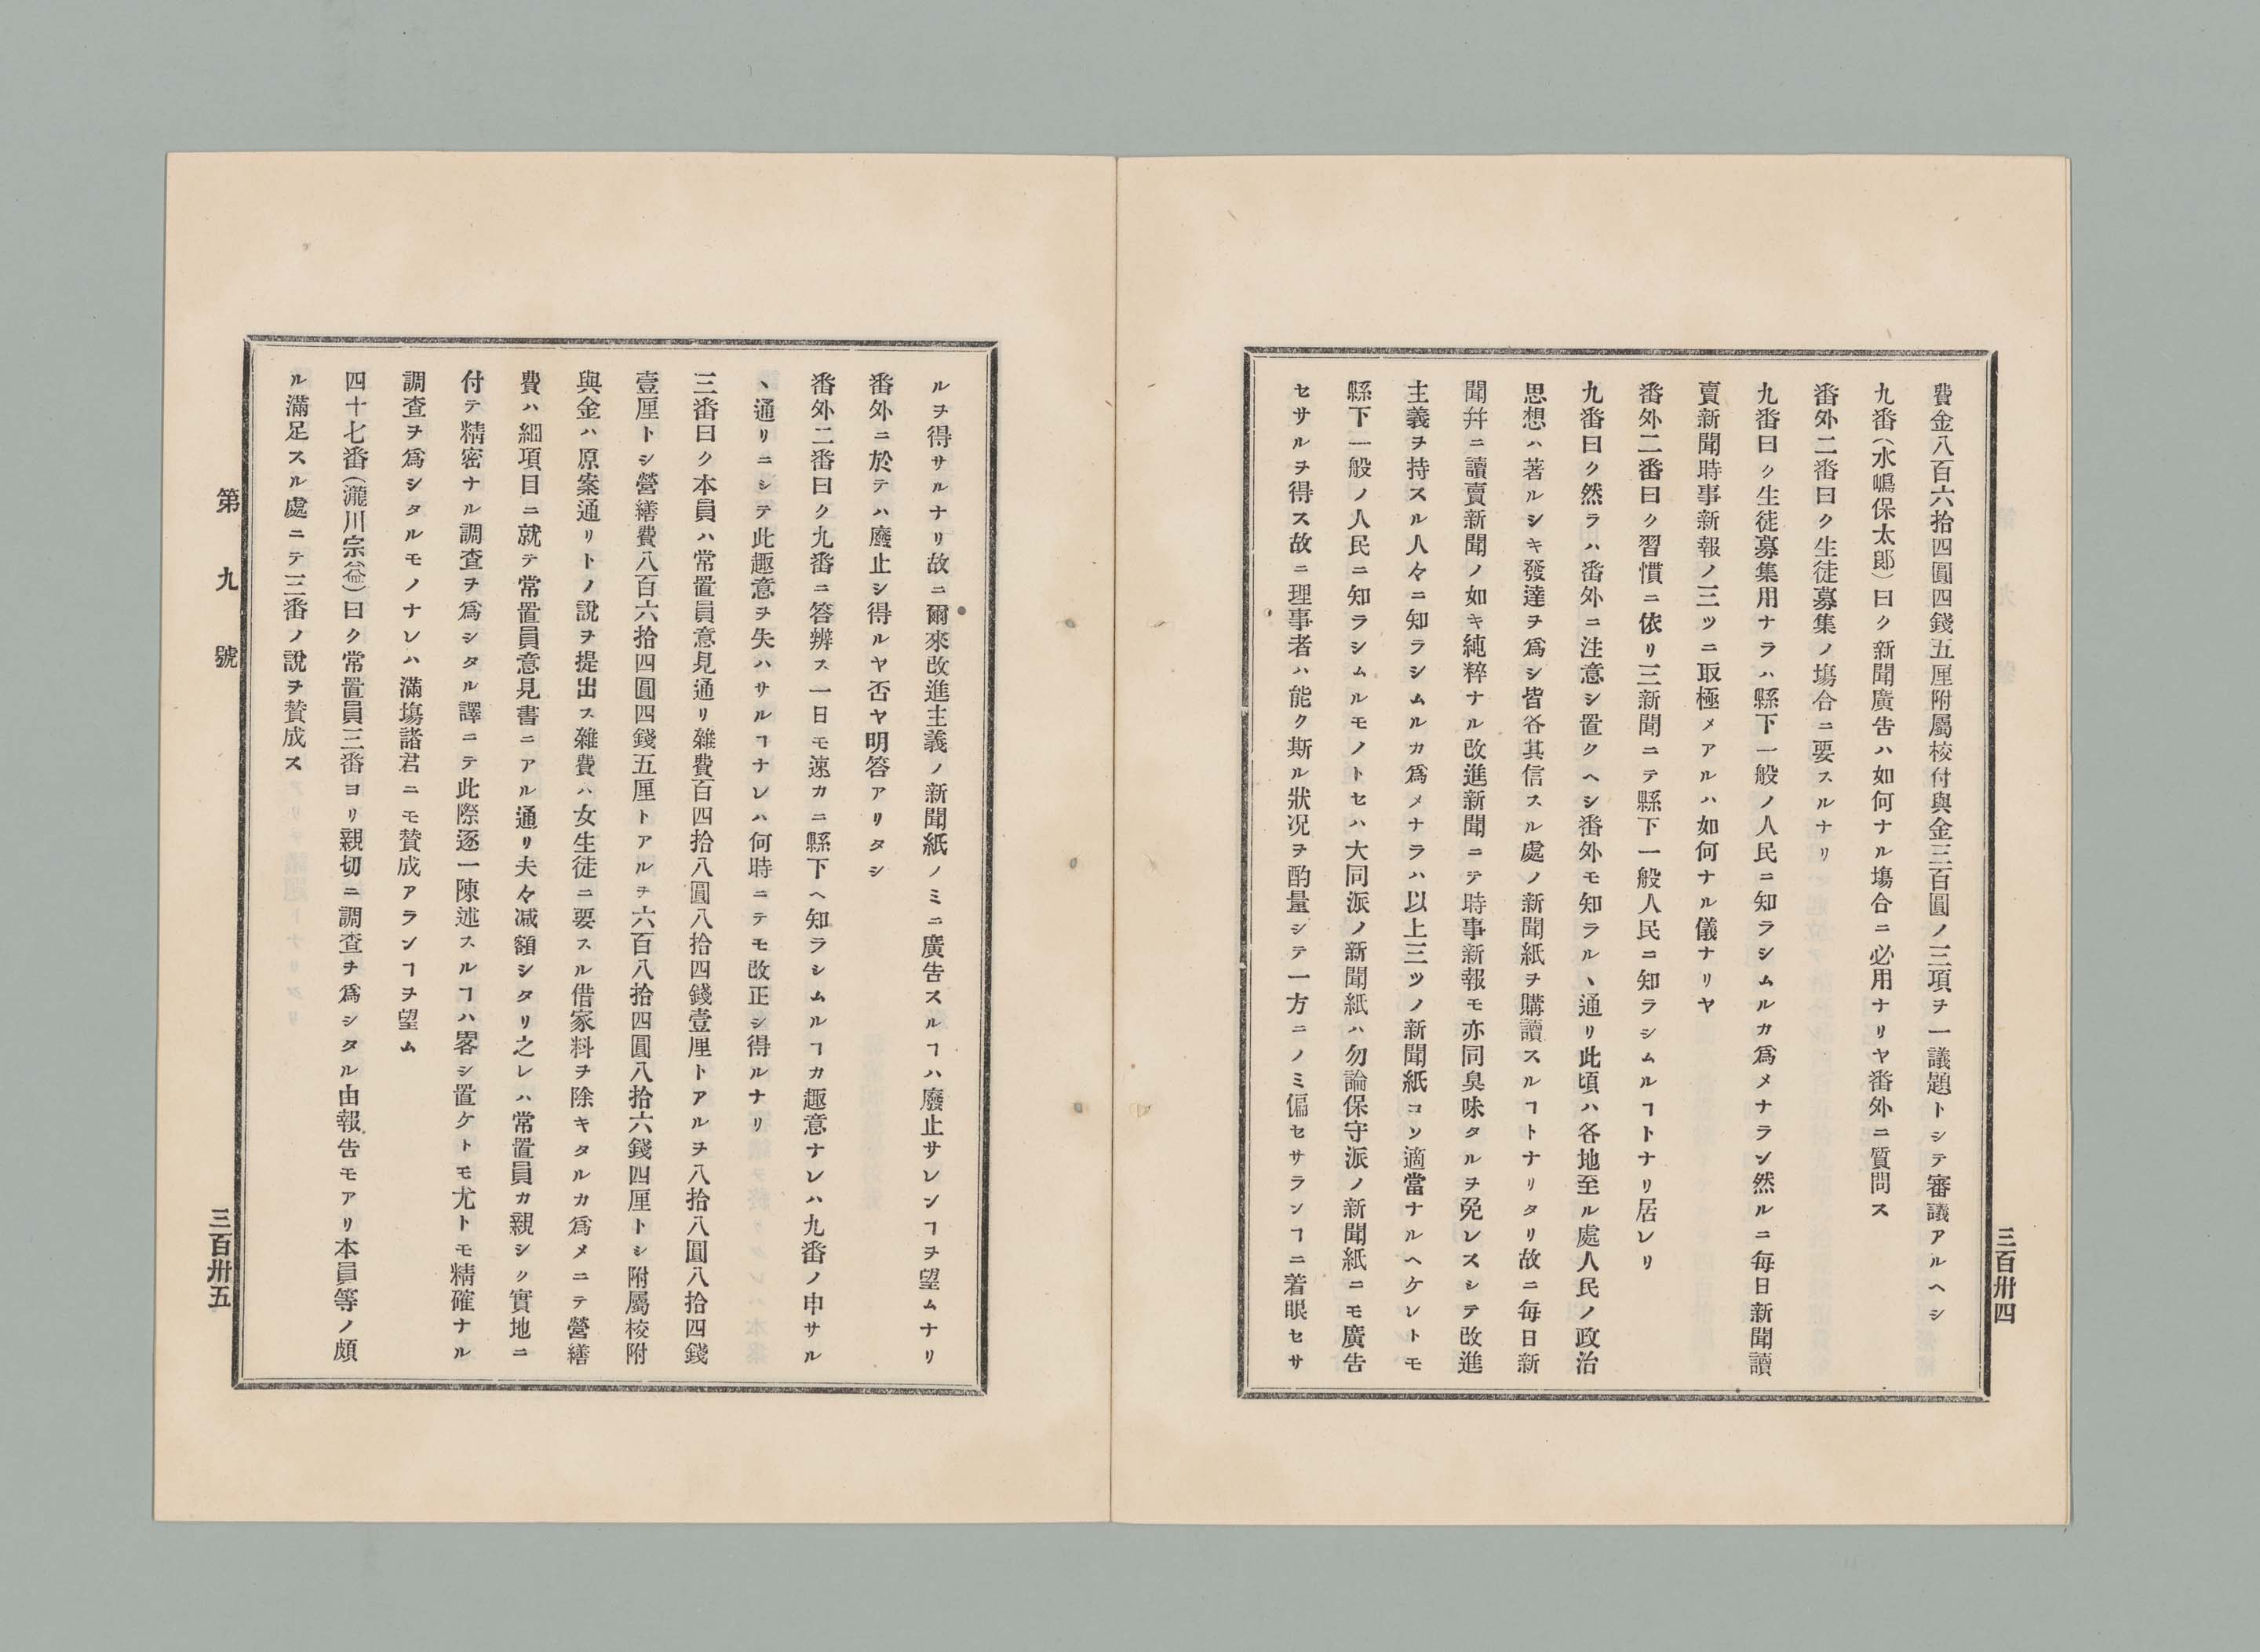 費金八百六拾四圓四錢五厘附屬校付與金三百圓ノ三項ヲ一議題トシテ審議アルヘシ
九番(水嶋保太郎)曰ク新聞廣告ハ如何ナル塲合ニ必用ナリヤ番外ニ質問ス
番外二番曰ク生徒募集ノ塲合ニ要スルナリ
九番曰ク生徒募集用ナラハ縣下一般ノ人民ニ知ラシムルカ爲メナラン然ルニ毎日新聞讀
賣新聞時事新報ノ三ツニ取極メアルハ如何ナル儀ナリヤ
番外二番曰ク習慣ニ依リ三新聞ニテ縣下一般人民ニ知ラシムルヿトナリ居レリ
九番曰ク然ラハ番外ニ注意シ置クヘシ番外モ知ラルヽ通リ此頃ハ各地至ル處人民ノ政治
思想ハ著ルシキ發達ヲ爲シ皆各其信スル處ノ新聞紙ヲ購讀スルヿトナリタリ故ニ毎日新
聞幷ニ讀賣新聞ノ如キ純粹ナル改進新聞ニテ時事新報モ亦同臭味タルヲ免レスシテ改進
主義ヲ持スル人々ニ知ラシムルカ爲メナラハ以上三ツノ新聞紙コソ適當ナルヘケレトモ
縣下一般ノ人民ニ知ラシムルモノトセハ大同派ノ新聞紙ハ勿論保守派ノ新聞紙ニモ廣告
セサルヲ得ス故ニ理事者ハ能ク斯ル狀况ヲ酌量シテ一方ニノミ偏セサランヿニ着眼セサ
三百卅四
ルヲ得サルナリ故ニ爾來改進主義ノ新聞紙ノミニ廣告スルヿハ廢止サレンヿヲ望ムナリ
番外ニ於テハ廢止シ得ルヤ否ヤ明答アリタシ
番外二番曰ク九番ニ答辨ス一日モ速カニ縣下ヘ知ラシムルヿカ趣意ナレハ九番ノ申サル
ヽ通リニシテ此趣意ヲ失ハサルヿナレハ何時ニテモ改正シ得ルナリ
三番曰ク本員ハ常置員意見通リ雜費百四拾八圓八拾四錢壹厘トアルヲ八拾八圓八拾四錢
壹厘トシ營繕費八百六拾四圓四錢五厘トアルヲ六百八拾四圓八拾六錢四厘トシ附屬校附
與金ハ原案通リトノ說ヲ提出ス雜費ハ女生徒ニ要スル借家料ヲ除キタルカ爲メニテ營繕
費ハ細項目ニ就テ常置員意見書ニアル通リ夫々减額シタリ之レハ常置員カ親シク實地ニ
付テ精密ナル調查ヲ爲シタル譯ニテ此際逐一陳述スルヿハ畧シ置ケトモ尤トモ精確ナル
調查ヲ爲シタルモノナレハ滿塲諸君ニモ賛成アランヿヲ望ム
四十七番(瀧川宗益)曰ク常置員三番ヨリ親切ニ調查ヲ爲シタル由報告モアリ本員等ノ頗
ル滿足スル處ニテ三番ノ說ヲ賛成ス
第九號
三百卅五